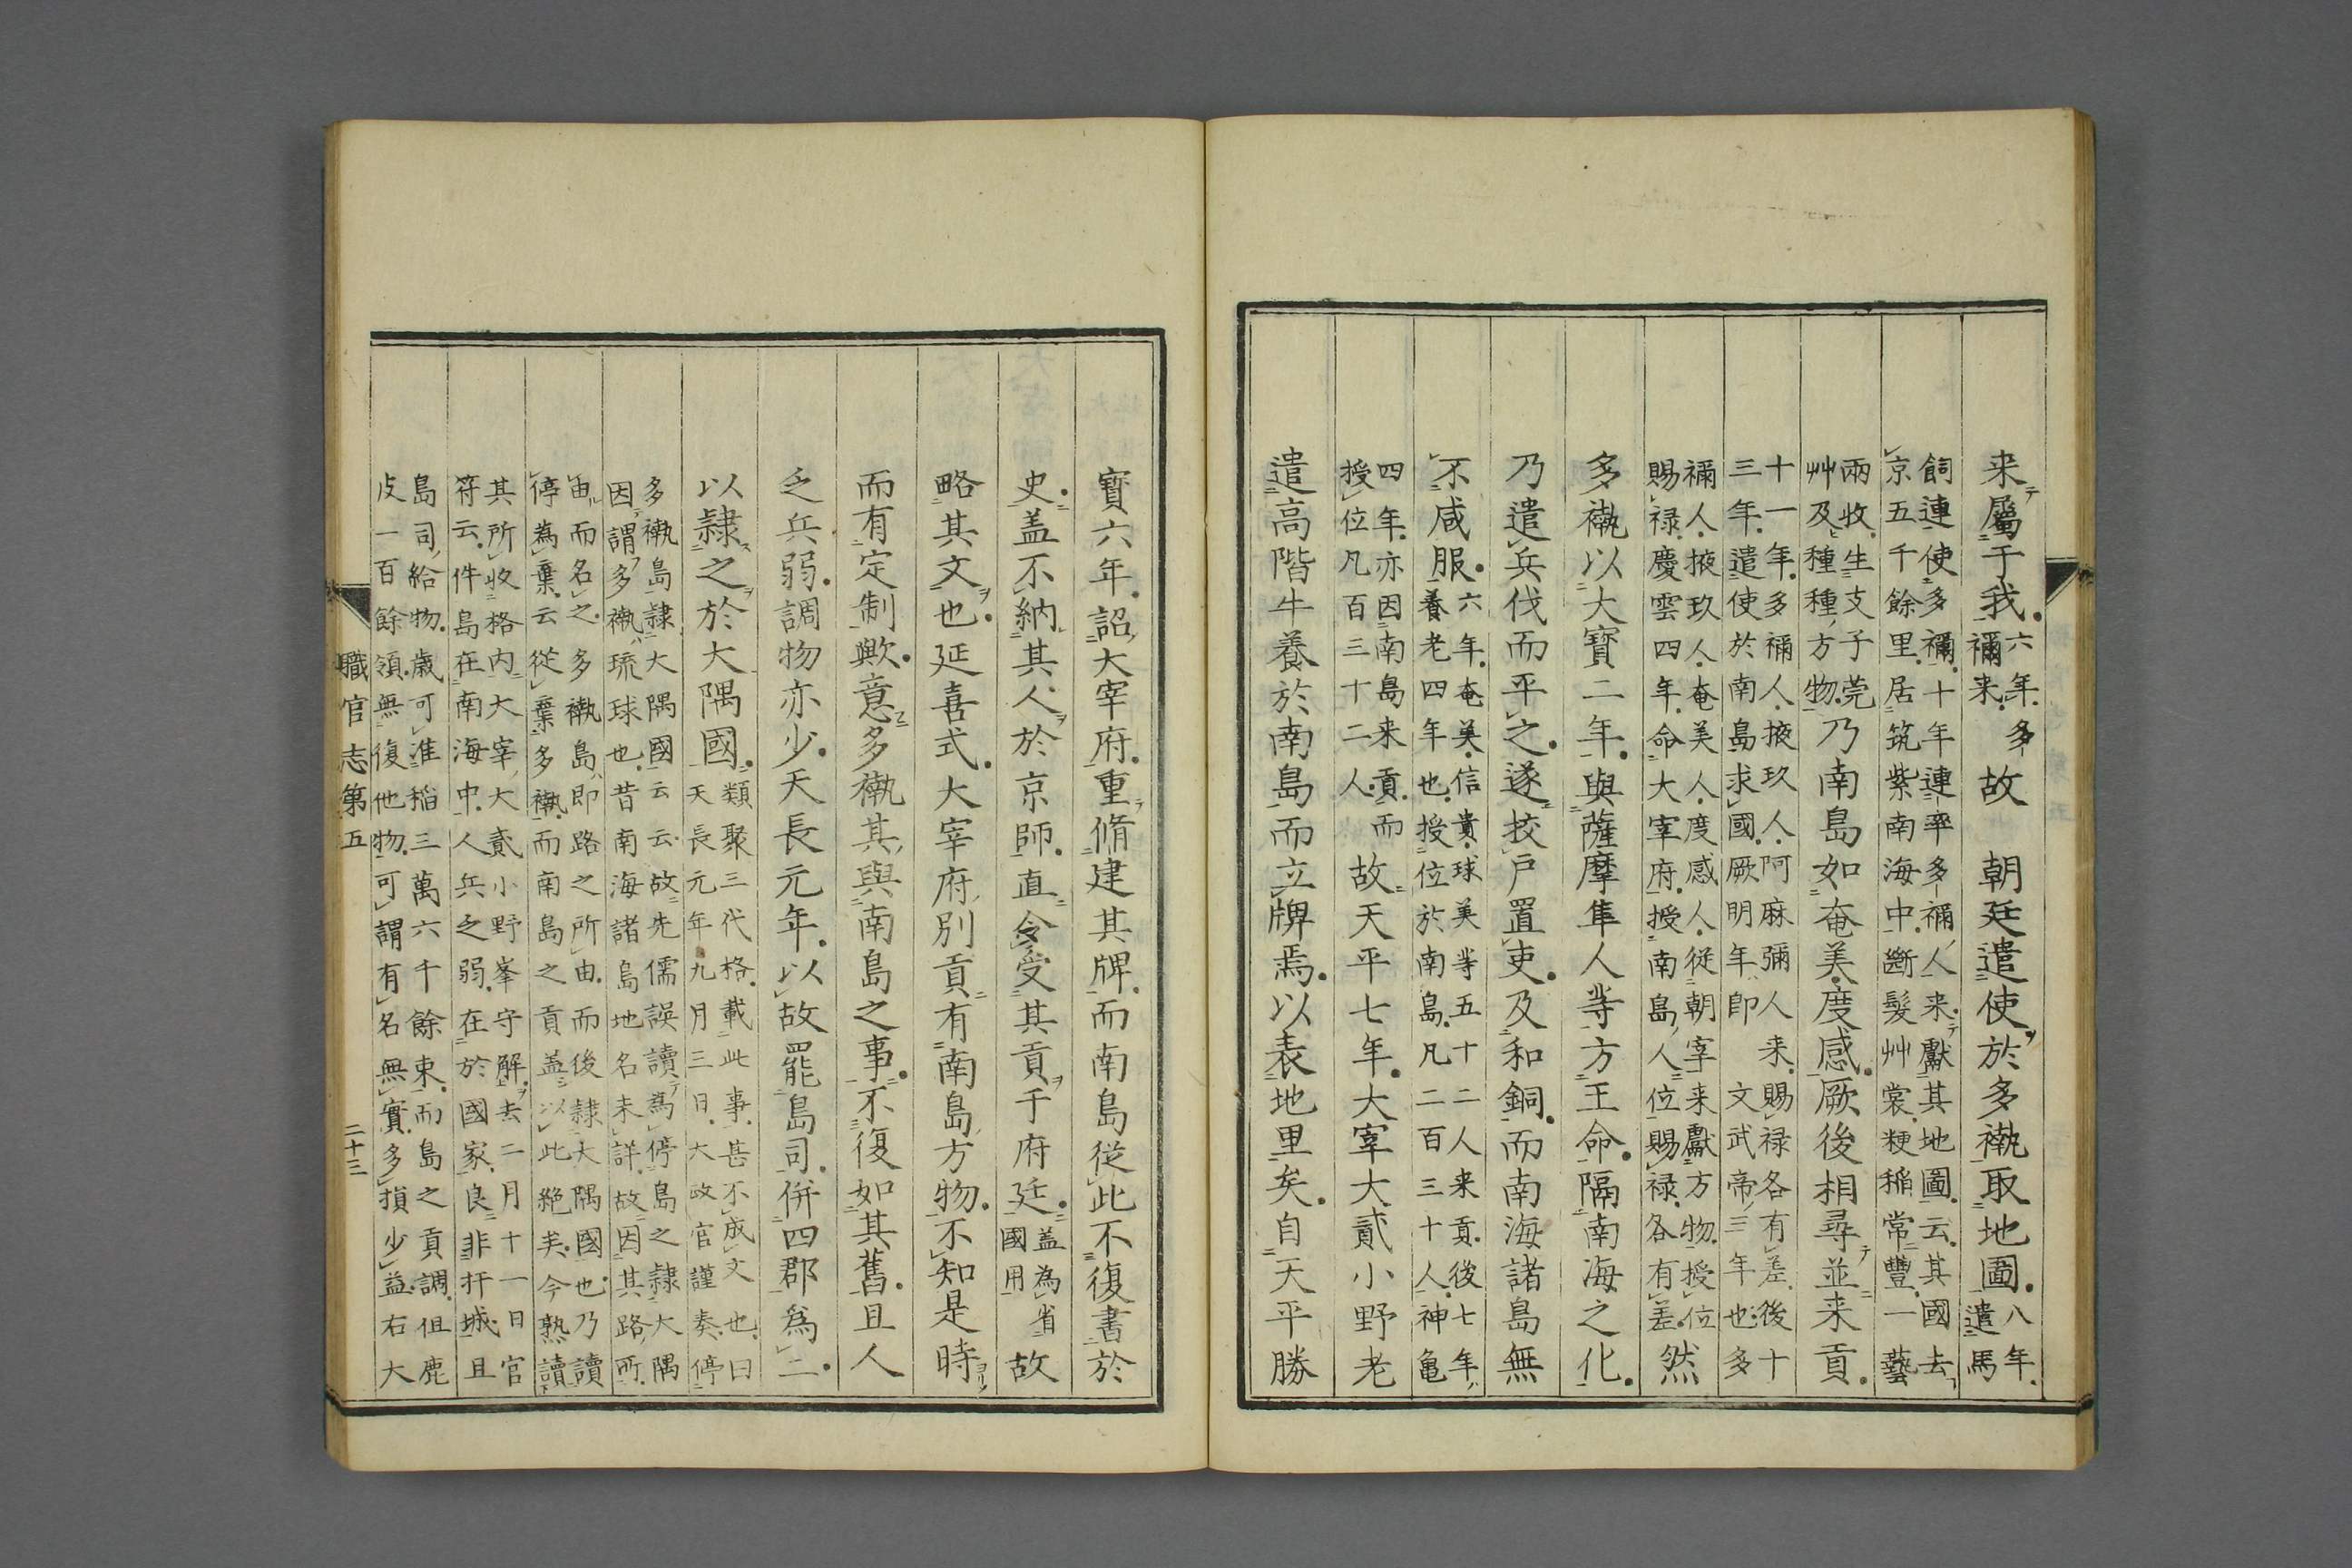 来屬于我六年多禰来故　朝廷遣使於多褹取地圖八年遣馬
飼連使多禰十年連率多禰人来獻其地圖云其國去
京五千餘里居筑紫南海中斷髮艸裳粳稲常豐一藝
兩收生支子莞艸及種種方物乃南島如奄美度感厥後相尋並来貢
十一年多禰人掖玖人阿麻彌人来賜禄各有差後十
三年遣使於南島求國厥明年即文武帝三年也多
禰人掖玖人奄美人度感人從朝宰来獻方物授位
賜禄慶雲四年命大宰府授南島人位賜禄各有差然
多褹以大寶二年與薩摩隼人等方王命隔南海之化
乃遣兵伐而平之遂挍戸置吏及和銅而南海諸島無
不咸服六年奄美信貴球美等五十二人来貢後七年
養老四年也授位於南島凡二百三十人神亀
四年亦因南島来貢而授位凡百三十二人故天平七年大宰大貳小野老
遣高階牛養於南島而立牌焉以表地里矣自天平勝
寶六年詔大宰府重脩建其牌而南島從此不復書於
史盖不納其人於京師直令受其貢于府廷盖為省國用故
略其文也延喜式大宰府別貢有南島方物不知是時
而有定制歟意多褹其與南島之事不復如其舊且人
乏兵弱調物亦少天長元年以故罷島司併四郡為二
以隷之於大隅國類聚三代格載此事甚不成文也曰
天長元年九月三日大政官謹奏停
多褹島隷大隅國云云故先儒誤讀為停島之隷大隅
因謂多褹琉球也昔南海諸島地名未詳故因其路所
由而名之多褹島即路之所由而後隷大隅國也乃讀
停為棄云從棄多褹而南島之貢盖以此絶矣今熟讀
其所收格内大宰大貳小野峯守解去二月十一日官
符云件島在南海中人兵乏弱在於國家良非扞城且
島司給物歳可准稲三萬六千餘束而島之貢調但鹿
皮一百餘領無復他物可謂有名無實多損少益右大
職官志第五　二十三